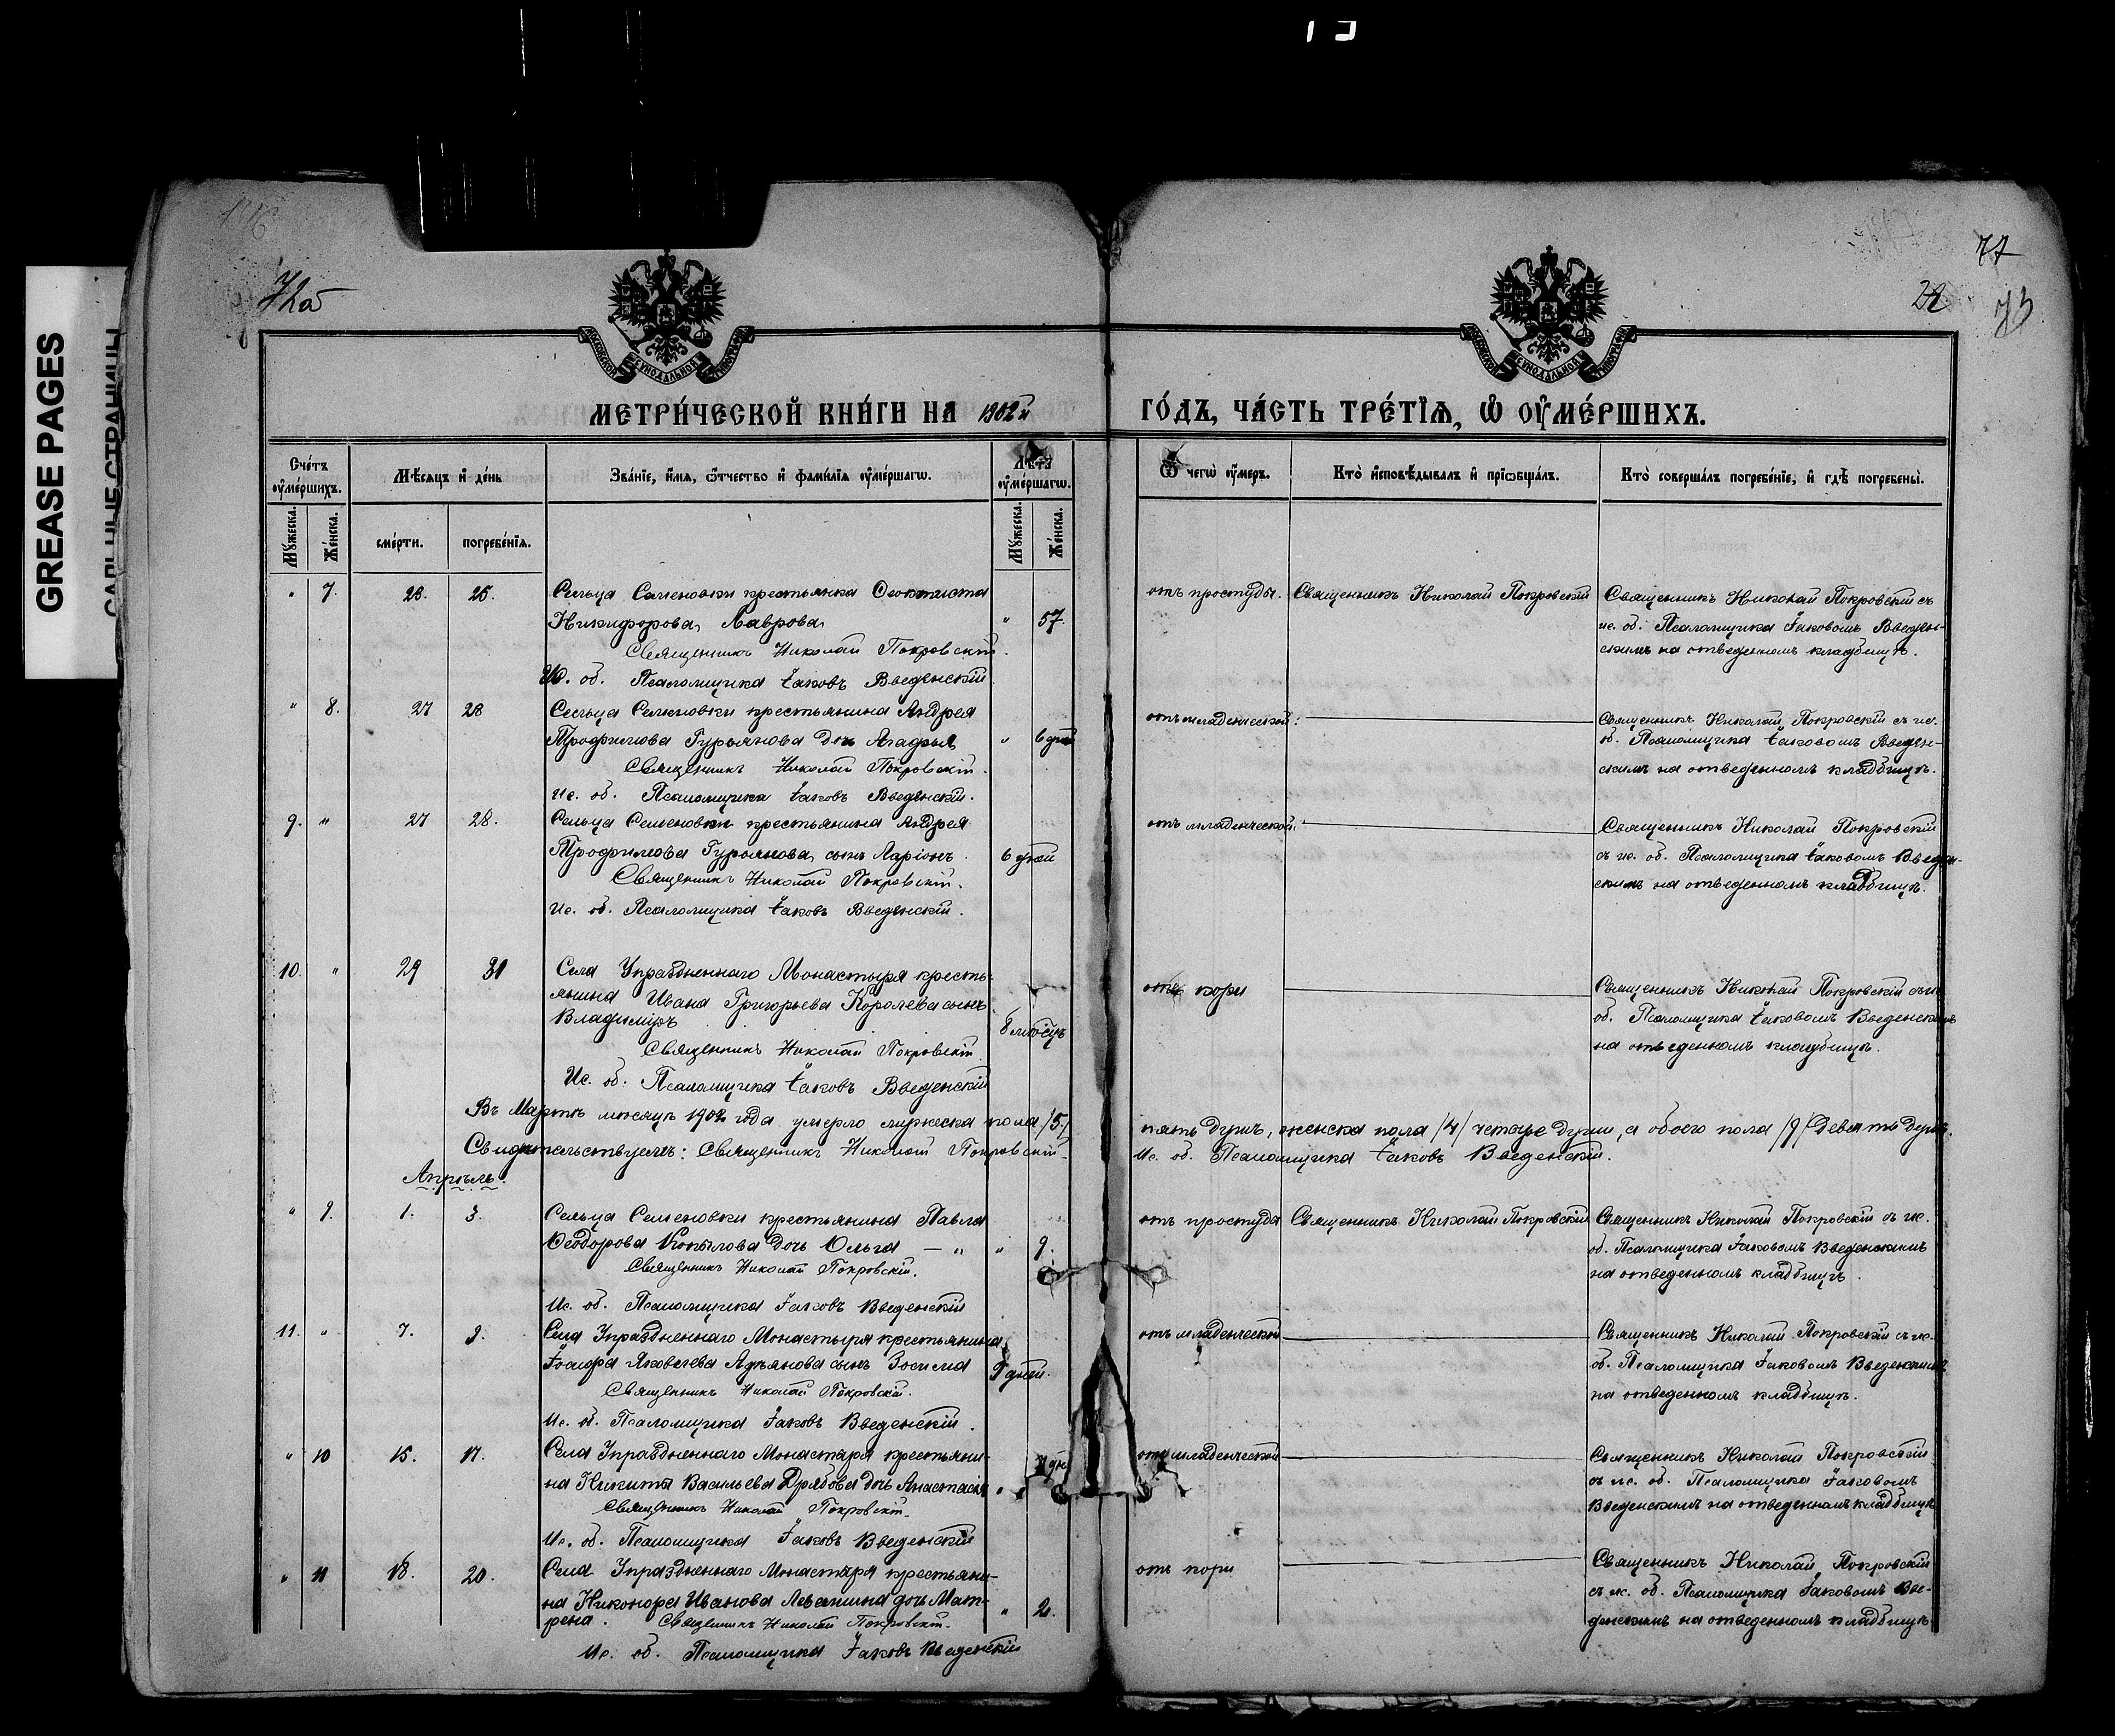 GREASE PAGES
САЛЬНЫЕ СТРАНИЦЫ
72об
77
73
МОСКОВСКОЙ СѴНОДАЛЬНОЙ ТИПОГРАФІИ
МОСКОВСКОЙ СѴНОДАЛЬНОЙ ТИПОГРАФІИ
МЕТРИ́ЧЕСКОЙ КНИ́ГИ НА 1902й ГО́ДЪ, ЧА́СТЬ ТРЕ́ТІѦ, Ѡ҆ ОУ҆МЕ́РШИХЪ.
Сче́тъ оу҆ме́ршихъ.
Мꙋ́жеска.
Же́нска.
Мѣ́сѧцъ и҆ де́нь
сме́рти.
погребе́нїѧ.
Зва́нїе, и҆́мѧ, ѻ҆́тчество и҆ фами́лїѧ оу҆ме́ршагѡ.
Лѣ́та оу҆ме́ршагѡ.
Мꙋ́жеска.
Же́нска.
Ѿ чегѡ̀ оу҆́меръ.
Кто̀ и҆сповѣ́дывалъ и҆ прїѡбща́лъ.
Кто̀ соверша́лъ погребе́нїе, и҆ гдѣ̀ погребены̀.
" 7. 23. 25. Сельца Семеновки крестьянка Феоктиста
Никифорова Лаврова " 57.
Священникъ Николай Покровскій.
Ис. об. Псаломщика Іаковъ Введенскій
отъ простуды. Священникъ Николай Покровскій
Священникъ Николай Покровскій съ
ис. об. Псаломщика Іаковомъ Введен-
скимъ на отведенномъ кладбищѣ.
" 8. 27 28 Сельца Семеновки крестьянина Андрея
Трофимова Гурьянова дочь Агафья " 6 дней
Священникъ Николай Покровскій.
Ис. об. Псаломщика Іаковъ Введенскій.
отъ младенческой.
Священникъ Николай Покровскій съ ис.
об. Псаломщика Іаковомъ Введен-
скимъ на отведенномъ кладбищѣ.
9. " 27 28. Сельца Семеновки крестьянина Андрея
Трофимова Гурьянова сынъ Ларіонъ. 6 дней
Священникъ Николай Покровскій.
Ис. об. Псаломщика Іаковъ Введенскій.
отъ младенческой.
Священникъ Николай Покровскій
съ ис. об. Псаломщика Іаковомъ Введен-
скимъ на отведенномъ кладбищѣ.
10. " 29 31 Села Упраздненнаго Монастыря кресть-
янина Ивана Григорьева Королева сынъ
Владиміръ 8 мѣсяц
Священникъ Николай Покровскій.
Ис. об. Псаломщика Іаковъ Введенскій
отъ кори
Священникъ Николай Покровскій съ ис
об. Псаломщика Іаковомъ Введенскимъ
на отведенномъ кладбищѣ.
Въ Мартѣ мѣсяцѣ 1902 года умерло мужеска пола /5/ пять душъ, женска пола /4/ четыре души, а обоего пола /9/ девять душъ.
Свидѣтельствуемъ: Священникъ Николай Покровскій.
Ис. об. Псаломщика Іаковъ Введенскій.
Апрѣль.
" 9. 1. 3. Сельца Семеновки крестьянина Павла
Ѳеодорова Копылова дочь Ольга — " " 9.
Священникъ Николай Покровскій.
Ис. об. Псаломщика Іаковъ Введенскій
отъ простуды Священникъ Николай Покровскій
Священникъ Николай Покровскій съ ис.
об. Псаломщика Іаковомъ Введенскимъ
на отведенномъ кладбищѣ.
11. " 7. 9. Села Упраздненнаго Монастыря крестьянина
Іосифа Яковлева сынъ Зосима 9 дней.
Священникъ Николай Покровскій.
Ис. об. Псаломщика Іаковъ Введенскій.
отъ младенческой
Священникъ Николай Покровскій съ ис.
об. Псаломщика Іаковомъ Введенскимъ
на отведенномъ кладбищѣ.
" 10 15. 17. Села Упраздненнаго Монастыря крестьяни-
на Никиты Васильева дочь Анастасія "
Священникъ Николай Покровскій.
Ис. об. Псаломщика Іаковъ Введенскій
отъ младенческой
Священникъ Николай Покровскій
съ ис. об. Псаломщика Іаковомъ
Введенскимъ на отведенномъ кладбищѣ
" 11 18. 20. Села Упраздненнаго Монастыря крестьяни-
на Никонора Иванова дочь Мат-
рена. " 2.
Священникъ Николай Покровскій.
Ис. об. Псаломщика Іаковъ Введенскій
отъ кори
Священникъ Николай Покровскій
съ ис. об. Псаломщика Іаковомъ Вве-
денскимъ на отведенномъ кладбищѣ